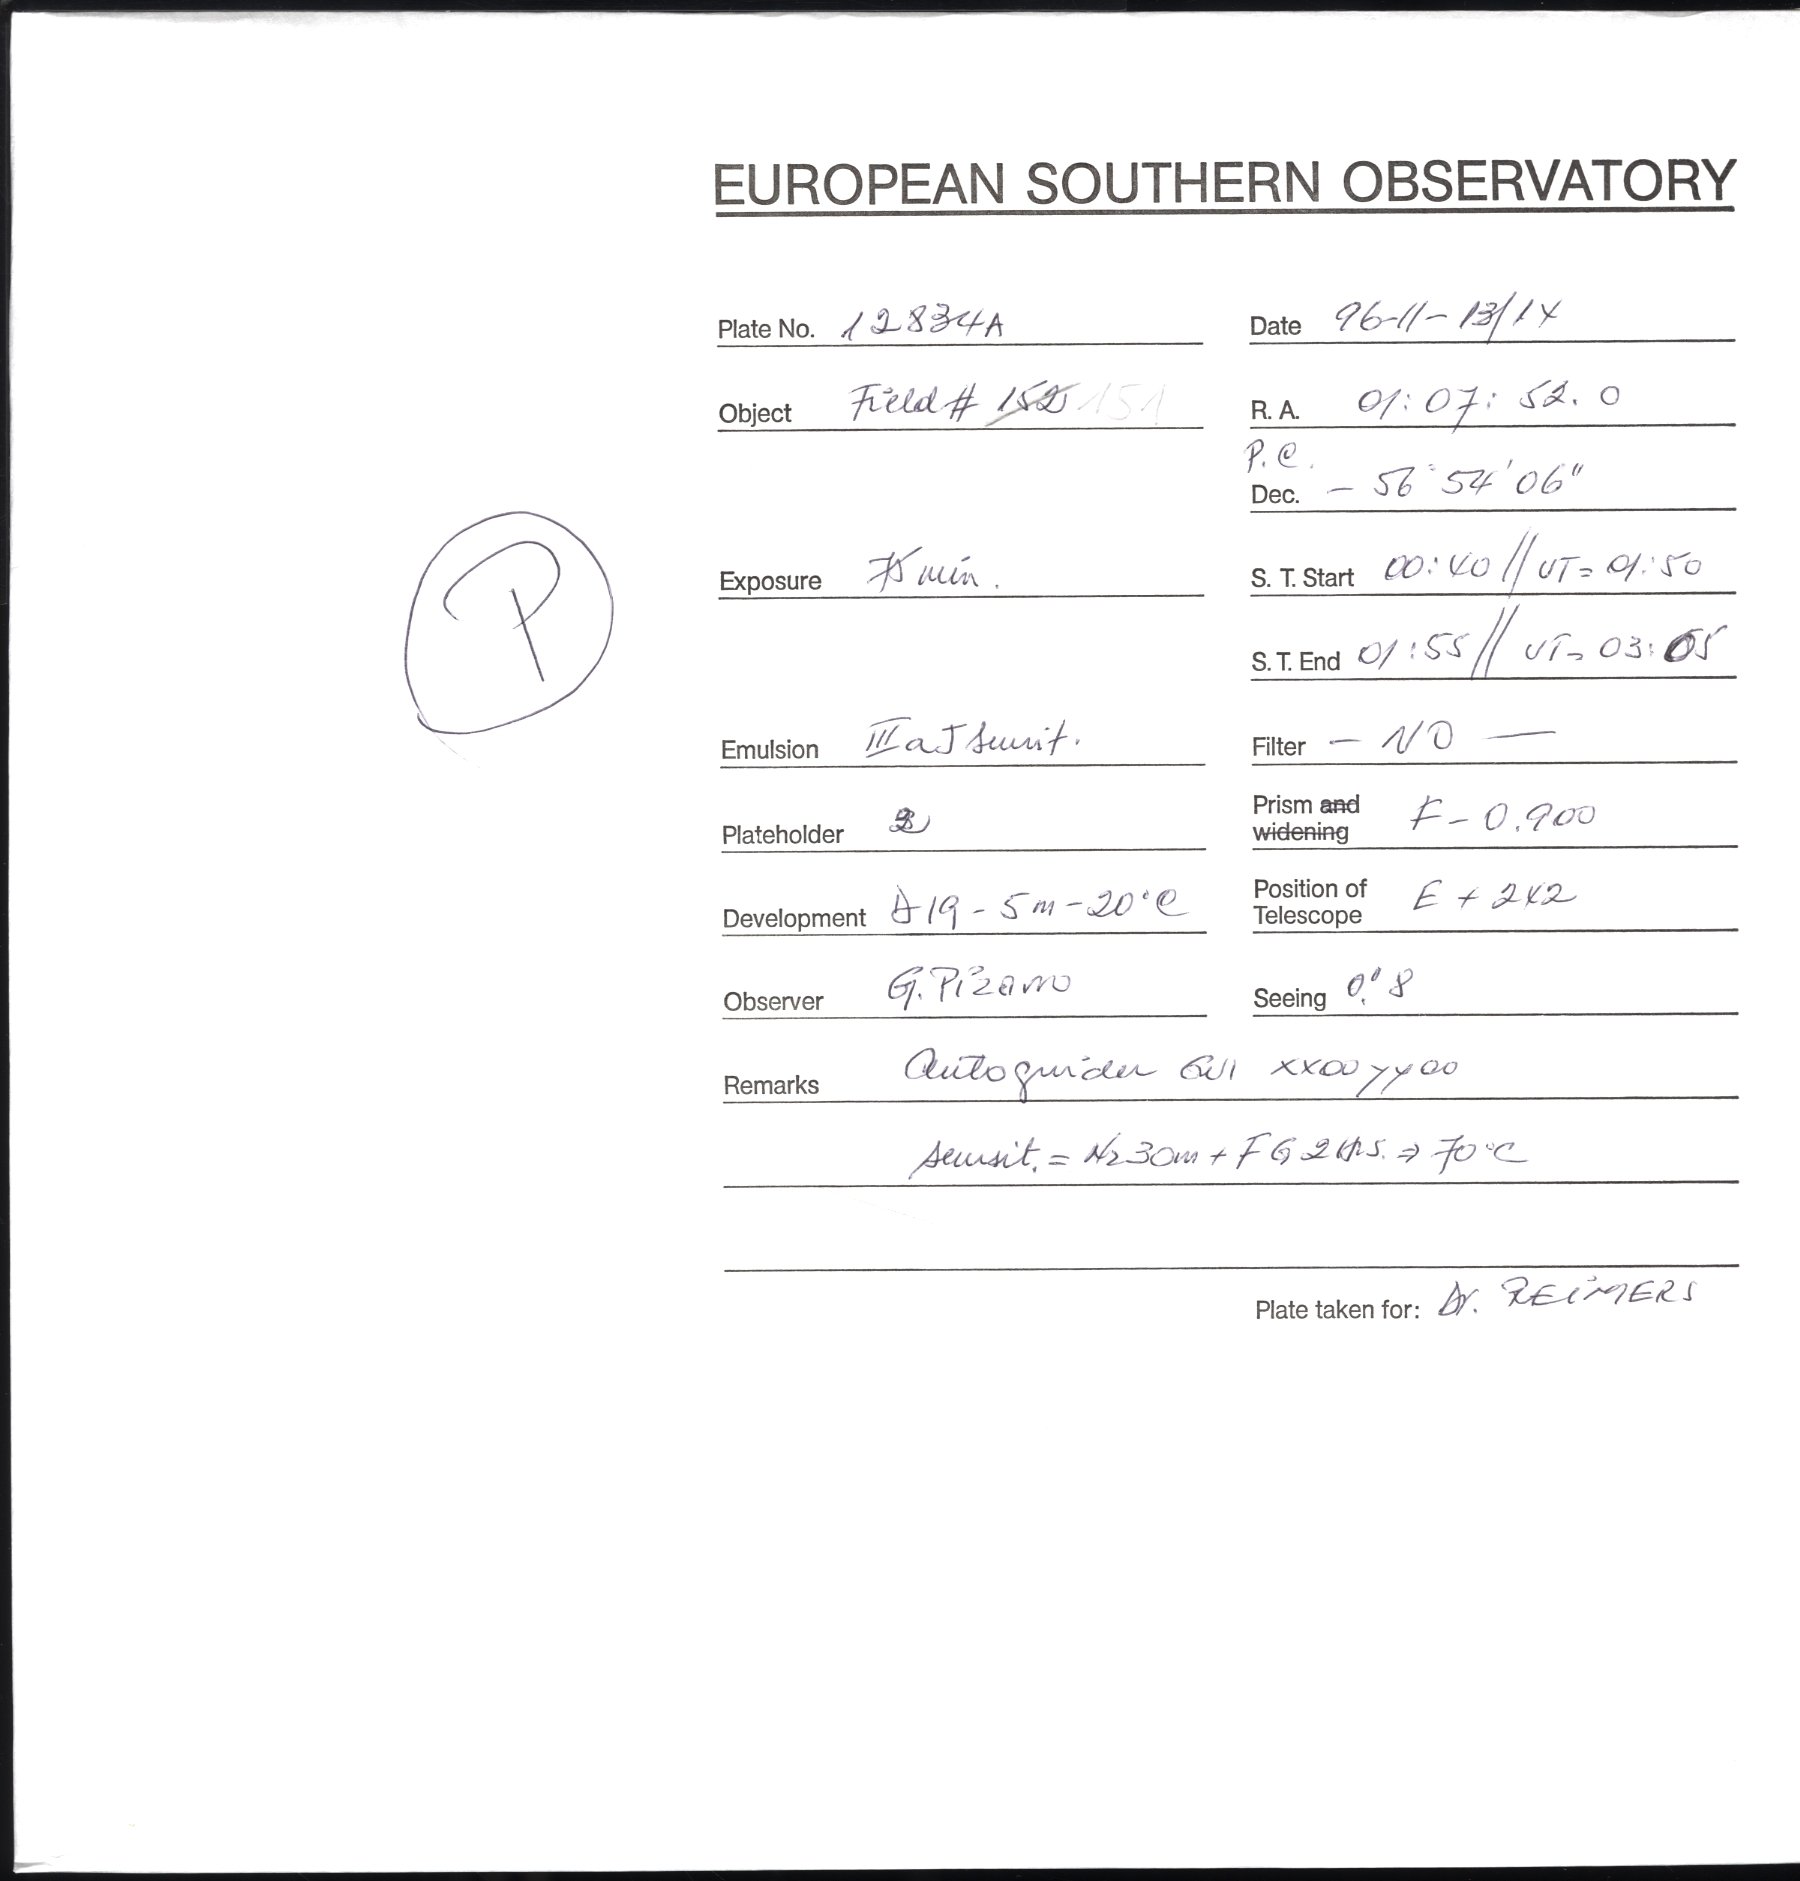 EUROPEAN SOUTHERN OBSERVATORY
Plate No. 12834A
Date 96-11-13/14
Object Field # 152 151
R. A. 01:07:52.0
P.C.
Dec. - 56°54'06"
P
Exposure 75 min.
S. T. Start 00:40 // UT= 01:50
S. T. End 01:55 // UT= 03:05
Emulsion IIIaJ sensit.
Filter - NO -
Plateholder
Prism and widening F - 0.900
Development D19 - 5m - 20°C
Position of Telescope E + 2x2
Observer G. Pizarro
Seeing 0."8
Remarks Autoguider GV1 xx00 yy00
sensit. = N2 30m + FG 2 Hrs. ⇒ 70°C
Plate taken for: Dr. REIMERS